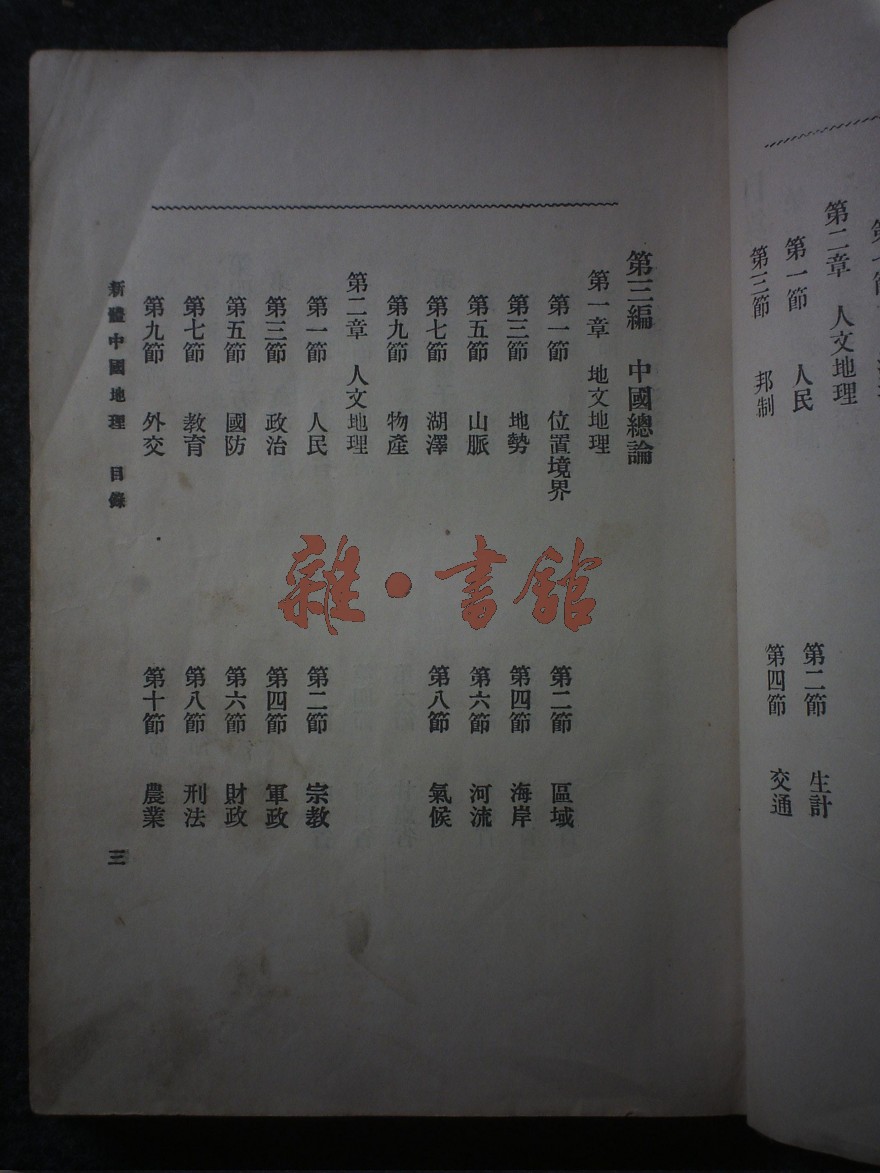 第二章 人文地理
第一節 人民
第二節 生計
第三節 邦制
第四節 交通
第三編 中國總論
第一章 地文地理
第一節 位置境界
第二節 區域
第三節 地勢
第四節 海岸
第五節 山脈
第六節 河流
第七節 湖澤
第八節 氣候
第九節 物產
第二章 人文地理
第一節 人民
第二節 宗教
第三節 政治
第四節 軍政
第五節 國防
第六節 財政
第七節 教育
第八節 刑法
第九節 外交
第十節 農業
新體中國地理 目錄
三
雜·書館